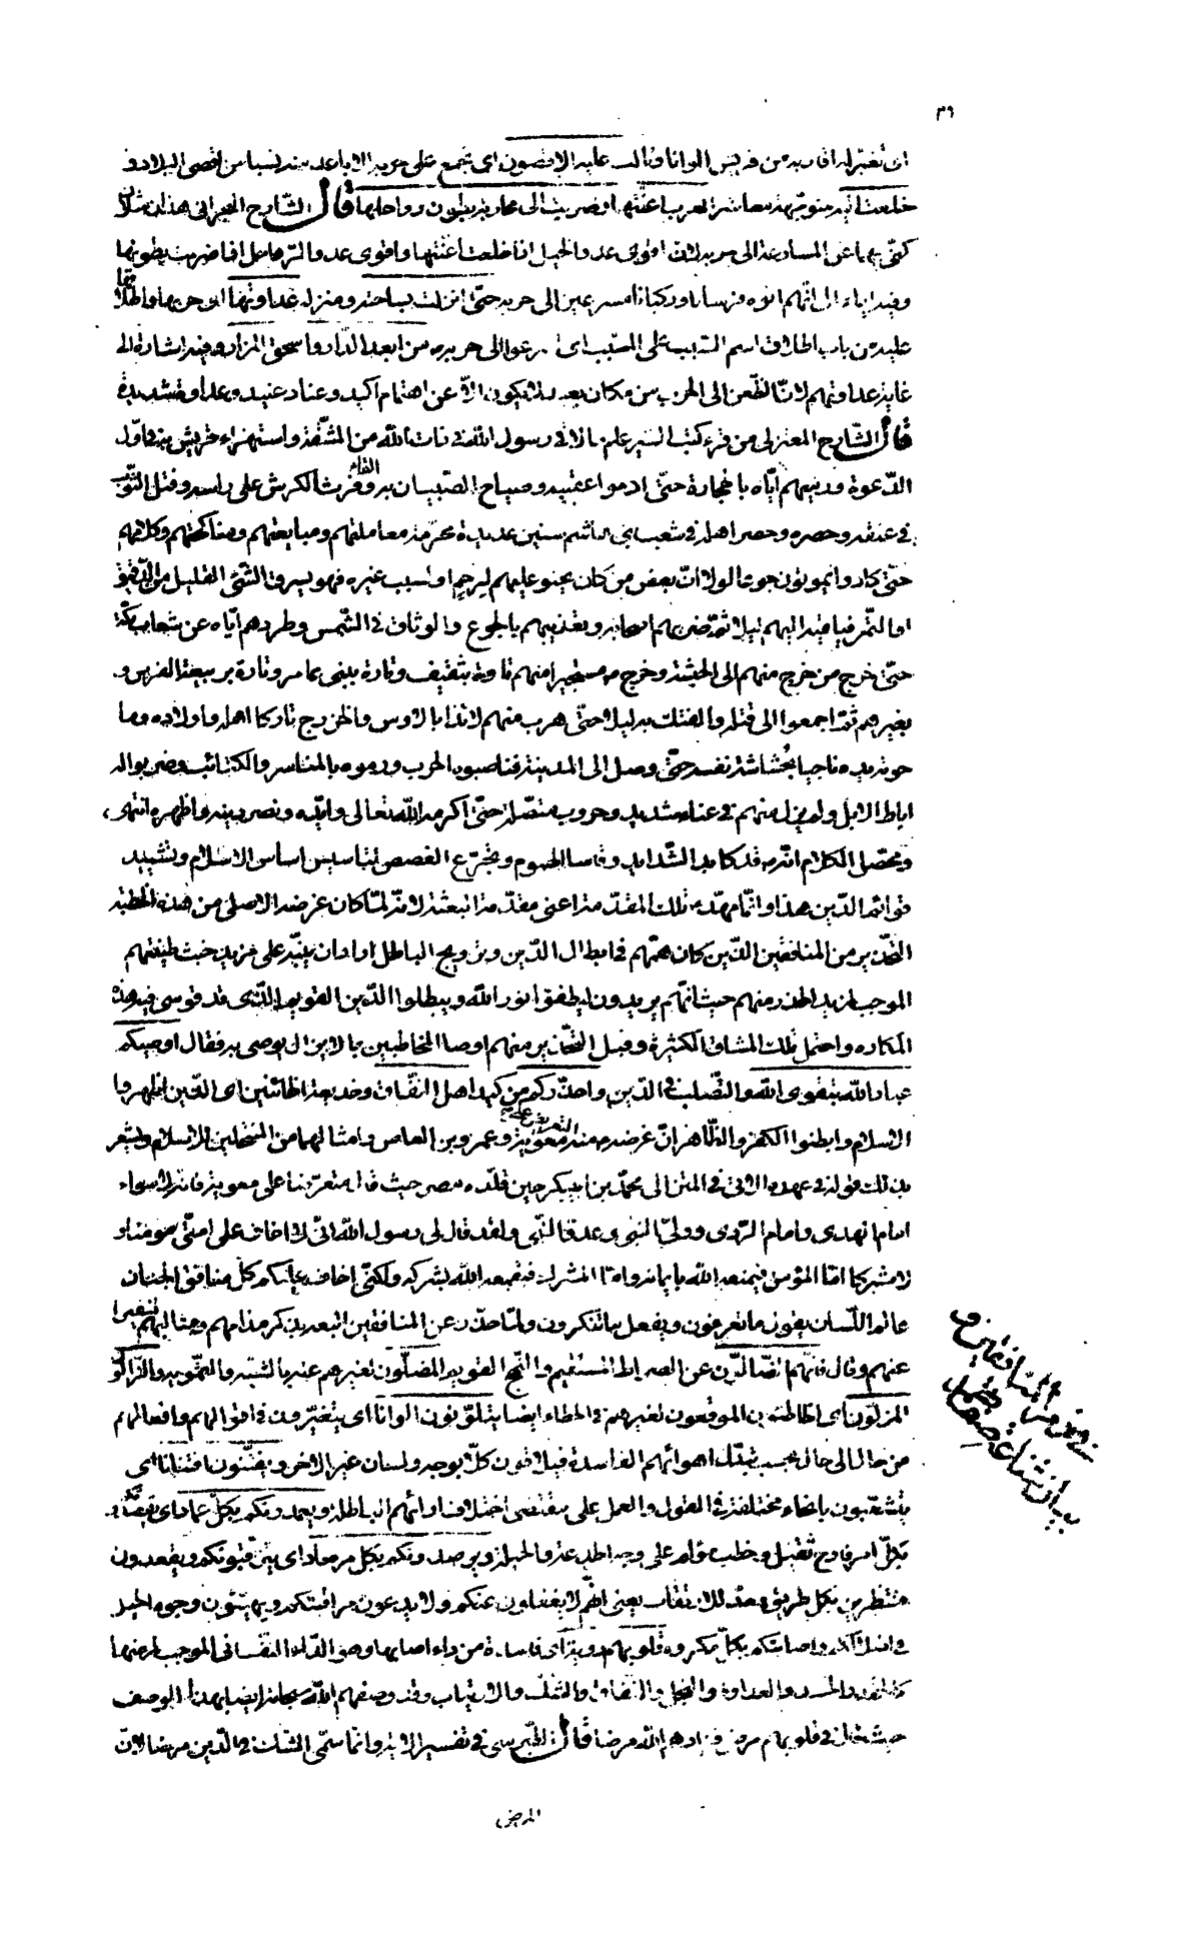 ٣٦
اى تغيّر له اقاربه من قريش الوانا وتألب عليه الاقصون اى تجمع على حربه الاباعد منه نسبا من اقصى البلاد و
خلعت اليه متوجهة معاشر العرب اعنّتها وضربت الى محاربته بطون رواحلها قال الشارح البحرانى هذان مثلان
كنّى بهما عن المسارعة الى حربه لان اقوى عدو الخيل اذا خلعت اعنّتها واقوى عدو الرواحل اذا ضربت بطونها
وفيه ايماء الى انّهم اتوه فرسانا وركبانا مسرعين الى حربه حتّى انزلت بساحته ومنزله عداوتها اى حربها واطلاقها
عليه من باب اطلاق اسم السّبب على المسبّب اى اسرعوا الى حربه من ابعد الدّار واسحق المزار وفيه اشارة الى
غاية عداوتهم لانّ الظّعن الى الحرب من مكان بعيد لا يكون الّا عن اهتمام اكيد وعناد عنيد وعداوة شديدة
قال الشّارح المعتزلى من قرء كتب السّير علم ما لاقى رسول اللّه فى ذات اللّه من المشقّة واستهزاء قريش به فى اوّل
الدّعوة ورميهم ايّاه بالحجارة حتّى ادموا عقبيه وصياح الصّبيان به وفرث الكرش على راسه وفتل الثّوب
القاء
فى عنقه وحصره وحصر اهله فى شعب بنى هاشم سنين عديدة محرّمة معاملتهم ومبايعتهم ومناكحتهم وكلامهم
حتّى كادوا يموتون جوعا لولا انّ بعض من كان يحنو عليهم لرحم او لسبب غيره فهو يسرق الشّىء القليل من الدّقيق
او التّمر فيلقيه اليهم ليلا ثمّ ضربهم اصحابه وتعذيبهم بالجوع والوثاق فى الشّمس وطردهم ايّاه عن شعاب مكّة
حتّى خرج من خرج منهم الى الحبشة وخرج مستجيرا منهم تارة بثقيف وتارة ببنى عامر وتارة بربيعة الفرس و
بغيرهم ثمّ اجمعوا الى قتله والفتك به ليلا حتّى هرب منهم لائذا بالاوس والخزرج تاركا اهله واولاده وما
حوته يده ناجيا بحُشاشة نفسه حتّى وصل الى المدينة فناصبوه الحرب ورموه بالمناسر والكتائب وضربوا اليه
اباط الابل ولم يزل منهم فى عناء شديد وحروب متصلة حتّى اكرمه اللّه تعالى وايّده ونصر دينه واظهره انتهى،
ومحصّل الكلام انّه قد كابد الشّدايد وقاسا الهموم وتجرّع الغصص لتاسيس اساس الاسلام وتشييد
قوائم الدّين هذا وانّما مهّد تلك المقدّمة اعنى مقدّمة البعثة لانّه لمّا كان غرضه الاصلى من هذه الخطبة
التّحذير من المنافقين الذّين كان همّهم فى ابطال الدّين وترويج الباطل اراد ان ينبّه على مزيد خبث طينتهم
الموجب لمزيد الحذر منهم حيث انّهم يريدون ليطفئوا نور اللّه ويبطلوا الدّين القويم الذّى قد قوسى فيه هذه
المكاره واحتمل تلك المشاق الكثيرة وقبل التّحذير منهم اوصا المخاطبين بما لا يزال يوصى به فقال اوصيكم
عباد اللّه بتقوى اللّه والتّصلب فى الدّين واحذّركم من كيد اهل النّفاق وخديعة الخائنين اى الذّين اظهروا
الاسلام وابطنوا الكفر والظّاهر انّ غرضه منه التعريض على معوية وعمرو بن العاص وامثالهما من المنتحلين للاسلام ويشعر
بذلك قوله فى عهده الاتى فى المتن الى محمّد بن ابيبكر حين قلّده مصر حيث قال متعرّضا على معوية فانه لا سواء
امام الهدى وامام الرّدى ووليّ النبى وعدوّ النّبى ولقد قال لى رسول اللّه انّى لا اخاف على امتّى مؤمنا و
لا مشركا امّا المؤمن فيمنعه اللّه بايمانه وامّا المشرك فيقمعه اللّه بشركه ولكنّى اخاف عليكم كلّ منافق الجنان
عالم اللّسان يقول ما تعرفون ويفعل ما تنكرون ولمّا حذّر عن المنافقين اتبعه بذكر مذامّهم ومثالبهم تنفيرا
عنهم وقال فانّهم الضّالّون عن الصّراط المستقيم والنّهج القويم المضلّون لغيرهم عنه بالشبه والتّمويه والزّالّون
المزلّون اى الخاطئون الموقعون لغيرهم فى الخطاء ايضا يتلوّنون الوانا اى يتغيّرون فى اقوالهم وافعالهم
من حال الى حال بحسب تبدّل اهوائهم الفاسدة فيلاقون كلّا بوجه ولسان غير الاخر ويفتنّون افتنانا اى
يتشعّبون بانحاء مختلفة فى القول والعمل على مقتضى اختلاف ارائهم الباطلة ويعمدونكم بكلّ عماد اى يقصدونكم
بكلّ امر فادح ثقيل وخطب مؤلم على وجه الخدعة والحيلة ويرصدونكم بكلّ مرصاد اى يترقّبونكم ويقعدون
منتظرين بكل طريق معدّ للارتقاب يعنى انهم لا يغفلون عنكم ولا يدعون مراقبتكم ويهيّئون وجوه الحيل
فى اضلالكم واصابتكم بكلّ مكروه قلوبهم دويّة اى فاسدة من داء اصابها وهو الدّاء النّفسانى الموجب لمرضها
كالحقد والحسد والعداوة والبخل والنّفاق والشّك والارتياب وقد وصفهم اللّه سبحانه ايضا بهذا الوصف
حيث قال فى قلوبهم مرض فزادهم اللّه مرضا قال الطّبرسى فى تفسير الاية وانّما سمّى الشّك فى الدّين مرضا لانّ
المرض